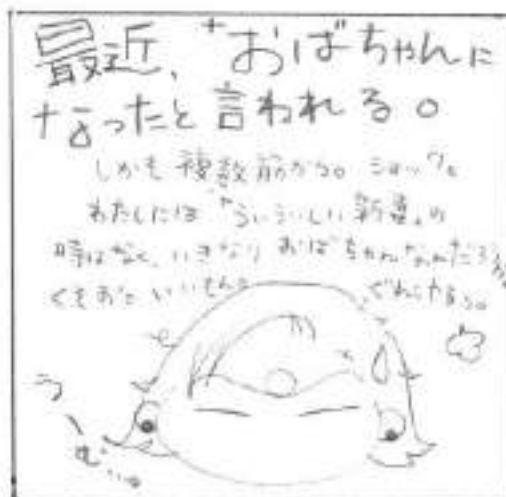 最近、"おばちゃんに
なったと言われる。
しかも複数筋から。ショック。
わたしには"ういういしい新妻"の
時はなく、いきなりおばちゃんなんだろうか
ぐれてやるっ。
うーむ…。